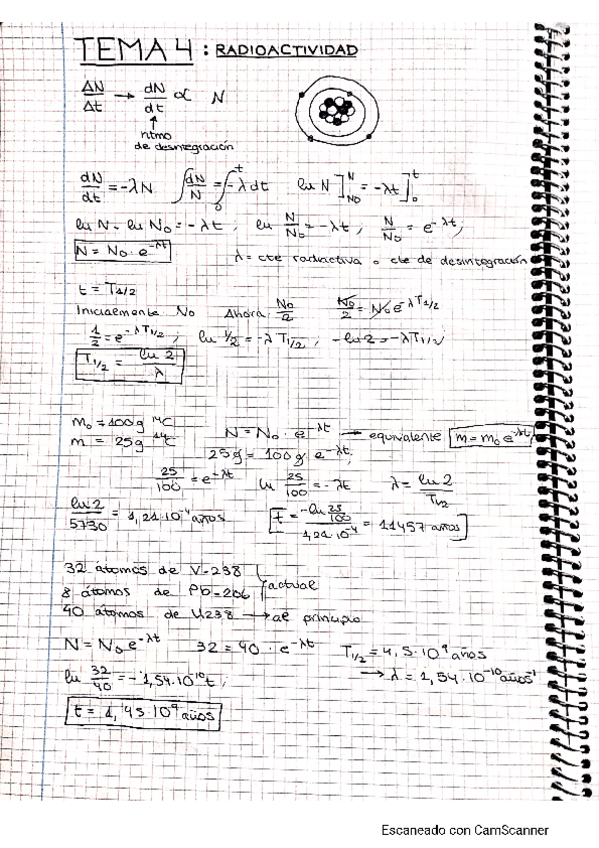 TEMA 4 : RADIOACTIVIDAD
ΔN/Δt → dN/dt ∝ N
↑
ritmo
de desintegración
dN/dt = -λN ∫dN/N = ∫₀ᵗ -λdt ln N]ᴺ_N₀ = -λt]₀ᵗ
ln N - ln N₀ = -λt, ln N/N₀ = -λt, N/N₀ = e^-λt;
N = N₀ · e^-λt λ = cte radiactiva o cte de desintegración
t = T1/2
Inicialmente N₀ Ahora N₀/2 N₀/2 = N₀ e^-λT1/2
1/2 = e^-λT1/2; ln 1/2 = -λ T1/2, -ln 2 = -λT1/2
T1/2 = ln 2/λ
m₀ = 100g ¹⁴C
m = 25g ¹⁴C N = N₀ · e^-λt → equivalente m = m₀ e^-λt
25g = 100g e^-λt;
25/100 = e^-λt ln 25/100 = -λt λ = ln 2/T1/2
ln 2/5730 = 1,21·10⁻⁴ años t = -ln 25/100 / 1,21·10⁻⁴ = 11457 años
32 átomos de V-238
8 átomos de Pb-206 } actual
40 átomos de U238 → al principio
N = N₀ e^-λt 32 = 40 · e^-λt T1/2 = 4,5·10⁹ años
ln 32/40 = -1,54·10¹⁰ t; → λ = 1,54·10⁻¹⁰ años⁻¹
t = 1,45·10⁹ años
Escaneado con CamScanner